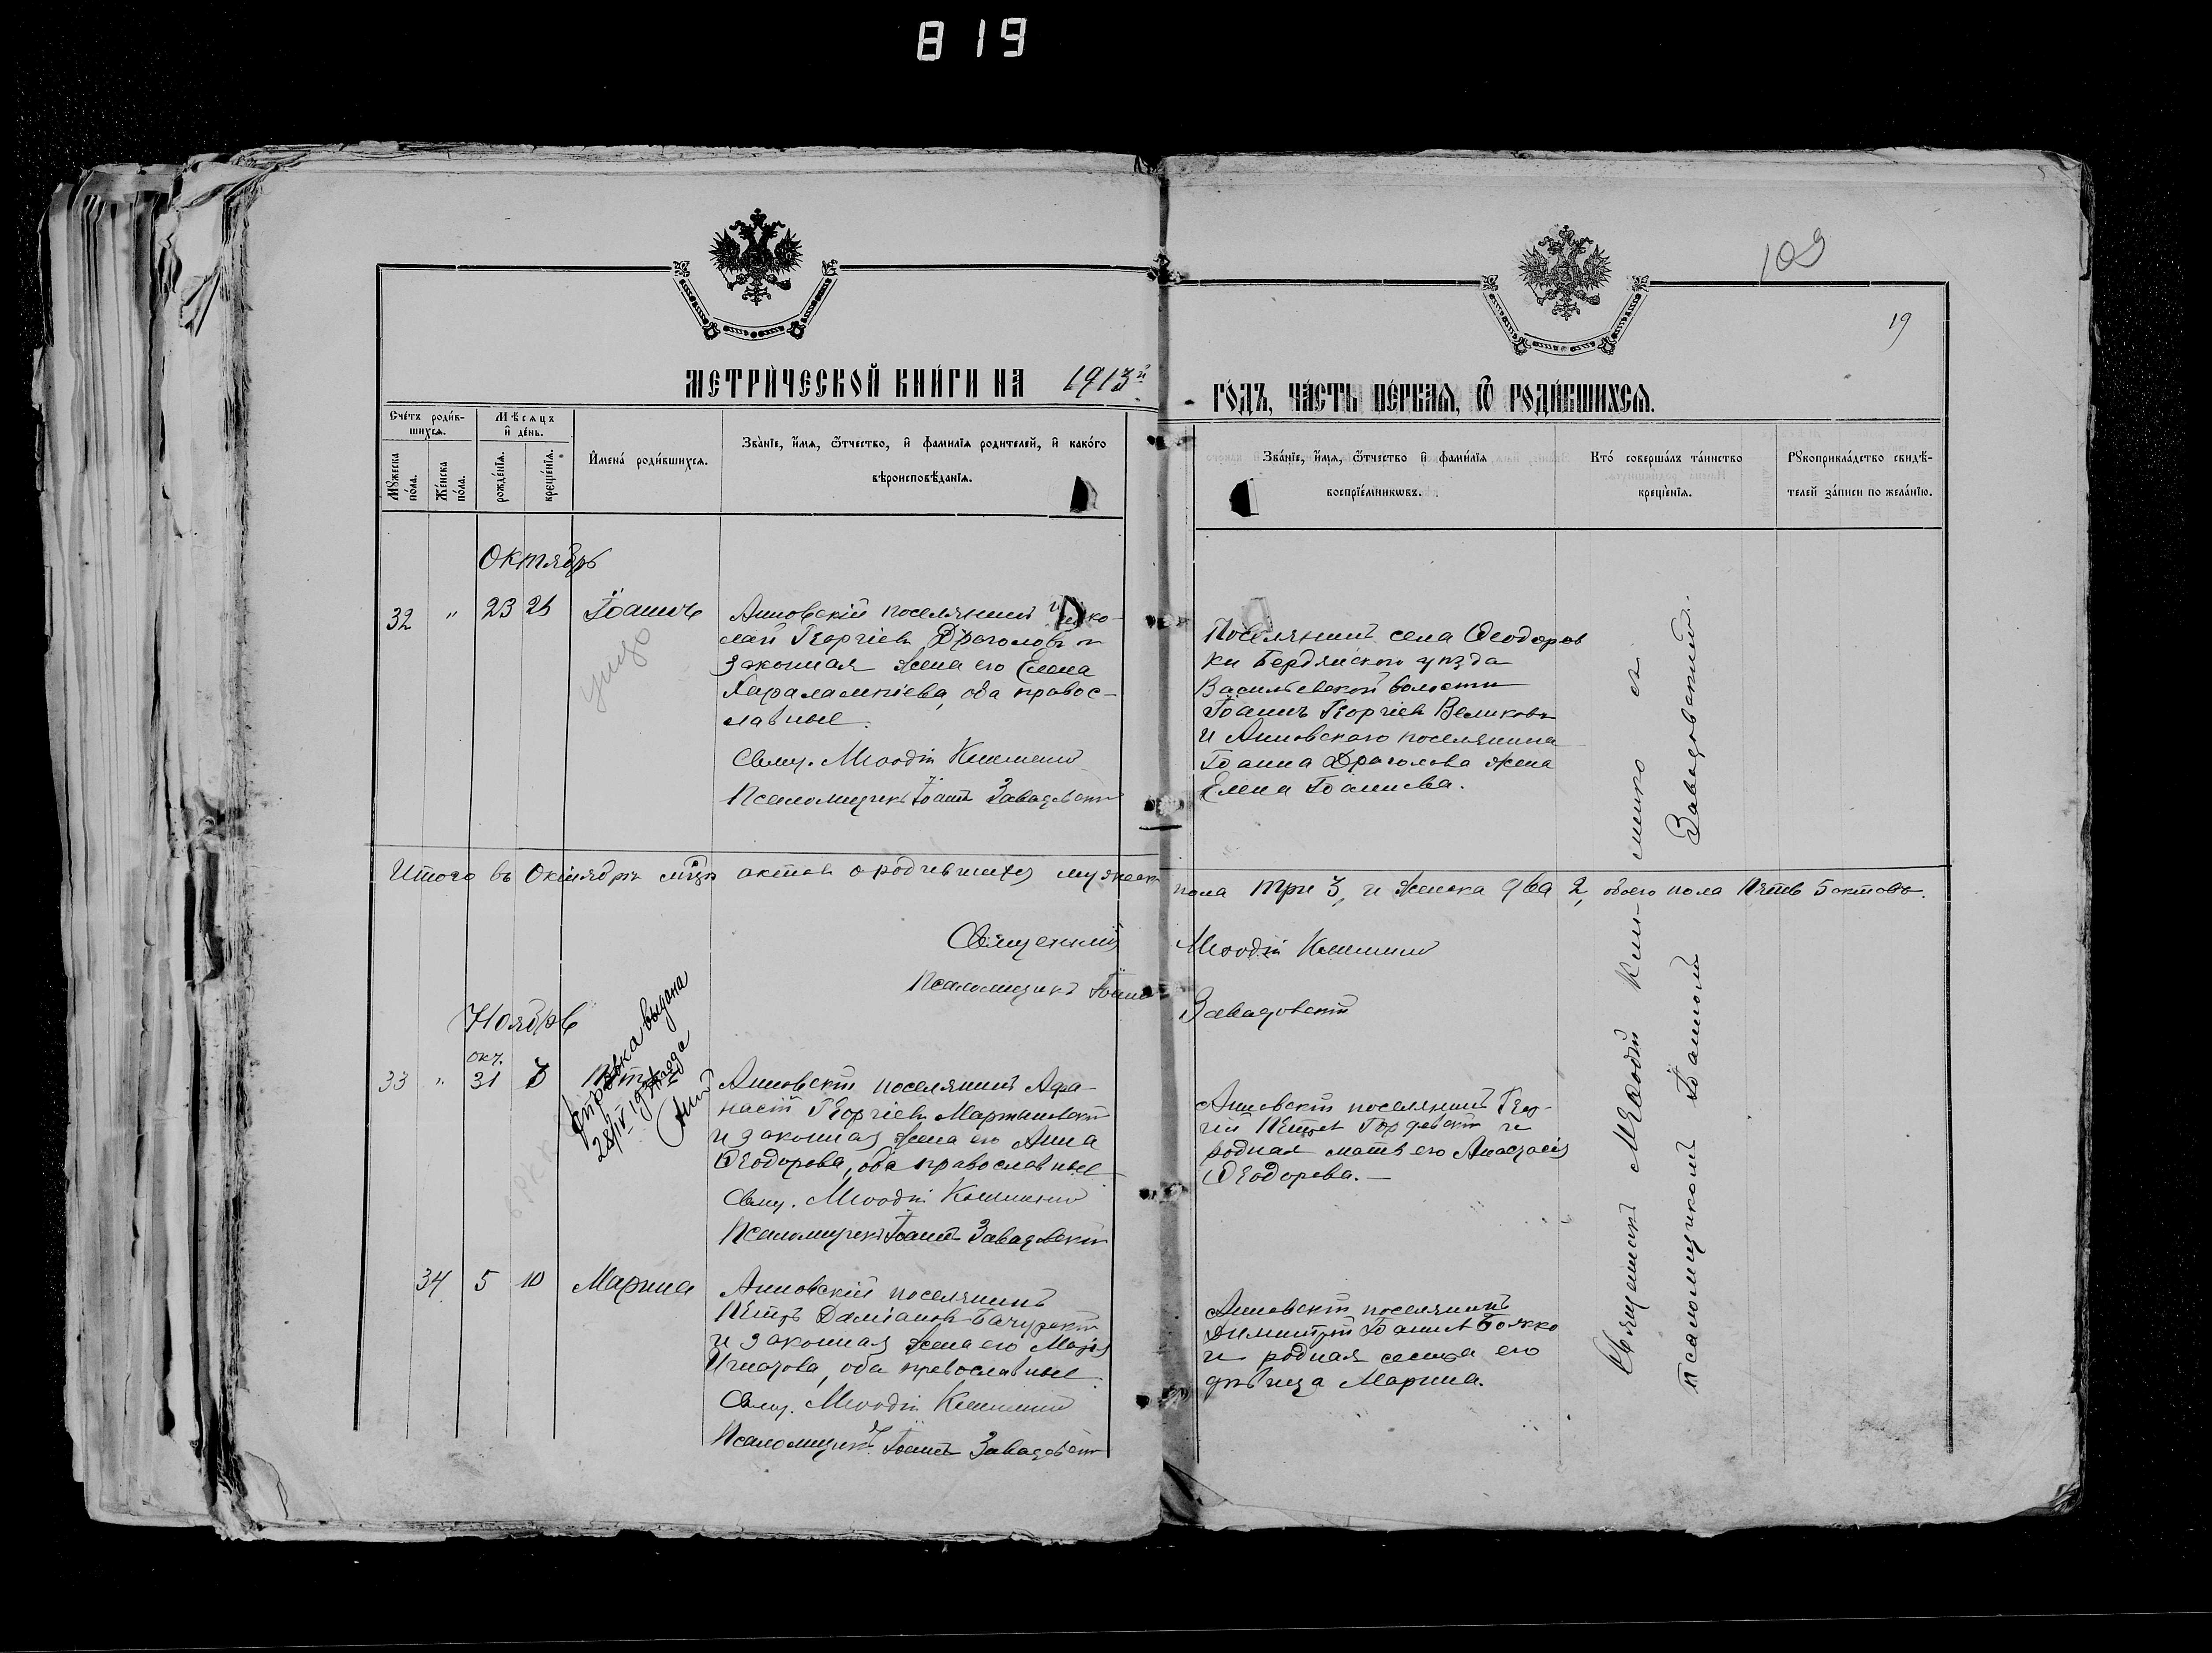 819
109
19
МЕТРИЧЕСКОЙ КНИГИ НА 1913й ГОДЪ, ЧАСТЬ ПЕРВАЯ, Ѿ РОДИВШИХСЯ.
Счетъ родив-
шихся.
Мужеска
пола.
Женска
пола.
Мѣсяцъ
и день.
рожденія.
крещенія.
Имена родившихся.
Званіе, имя, ѿтчество, и фамилія родителей, и какого
вѣроисповѣданія.
Званіе, имя, ѿтчество и фамилія
воспріемниковъ.
Кто совершалъ таинство
крещенія.
Рукоприкладство свидѣ-
телей записи по желанію.
Октябрь
32 " 23 Іоаннъ
Анновскій поселянинъ Нико-
лай Георгіевъ Драголовъ и
законная жена его Елена
Харалампіева, оба правос-
лавные.
Свящ. Меѳодій
Псаломщикъ Іоаннъ Завадовскій
Поселянинъ села Ѳеодоров
ки Бердянскаго уѣзда
Васильевской волости
Іоаннъ Георгіевъ Великовъ
и Анновскаго поселянина
Іоанна Драголова жена
Елена Іоаннова.
Итого въ Октябрѣ мѣсяцѣ актовъ о родившихся мужеска пола три 3, и женска два 2, обоего пола пять 5 актовъ.
Священникъ Меѳодій
Псаломщикъ Іоаннъ Завадовскій
Ноябрь
окт.
33 " 31 3 Петръ
Справка выдана
28/IV 19 года
Анновскій поселянинъ Аѳа-
насій Георгіевъ Мартыновскій
и законная жена его Анна
Ѳеодорова, оба православные
Свящ. Меѳодій
Псаломщикъ Іоаннъ Завадовскій
Анновскій поселянинъ Геор-
гій Петровъ и
родная мать его Анастасія
Ѳеодорова.—
34 5 10 Марина
Анновскій поселянинъ
Петръ Даміановъ
и законная жена его Марія
Игнатова, оба православные.
Свящ. Меѳодій
Псаломщикъ Іоаннъ Завадовскій
Анновскій поселянинъ
Димитрій Іоанновъ Божко
и родная сестра его
дѣвица Марина.
Священникъ Меѳодій съ
псаломщикомъ Іоанномъ Завадовскимъ.